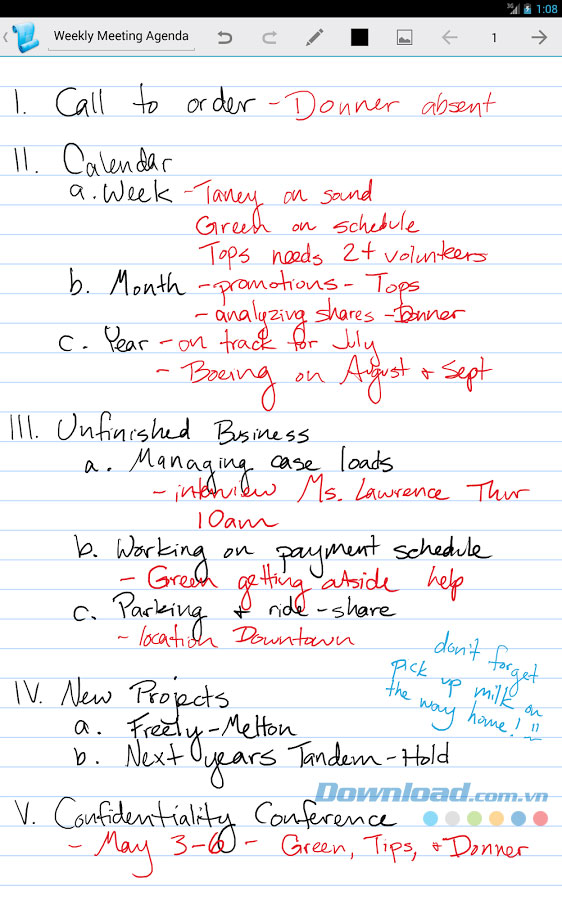 3G 1:08
Weekly Meeting Agenda
1
I. Call to order - Donner absent
II. Calendar
a. Week - Taney on sound
Green on schedule
Tops needs 2+ volunteers
b. Month - promotions - Tops
- analyzing shares - Donner
c. Year - on track for July
- Boeing on August + Sept
III. Unfinished Business
a. Managing case loads
- interview Ms. Lawrence Thur
10am
b. Working on payment schedule
- Green getting outside help
c. Parking + ride-share
- location Downtown
don't forget
pick up milk on
the way home! !!
IV. New Projects
a. Freely-Melton
b. Next years Tandem-Hold
Download.com.vn
V. Confidentiality Conference
- May 3-6 - Green, Tips, + Donner